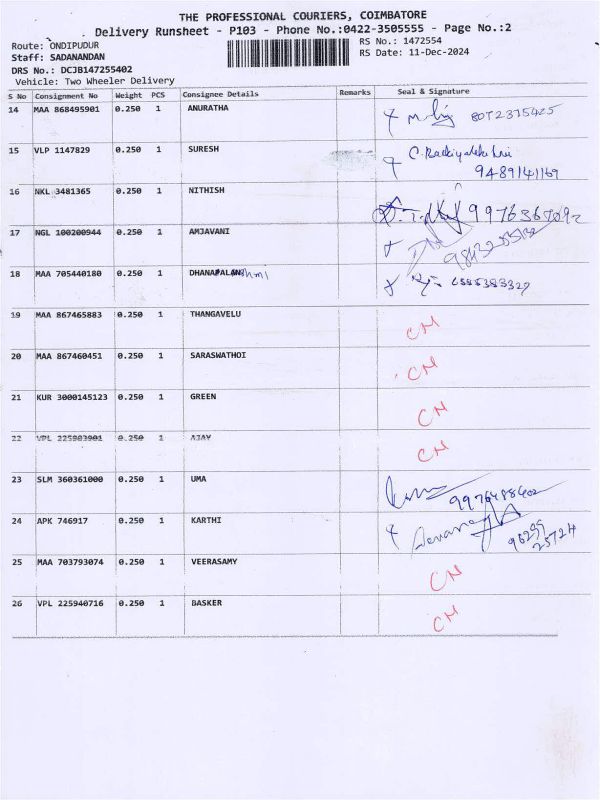 THE PROFESSIONAL COURIERS, COIMBATORE
Delivery Runsheet - P103 - Phone No.:0422-3505555 - Page No.:2
Route: ONDIPUDUR RS No.: 1472554
Staff: SADANANDAN RS Date: 11-Dec-2024
DRS No.: DCJB147255402
Vehicle: Two Wheeler Delivery
S No Consignment No Weight PCS Consignee Details Remarks Seal & Signature
14 MAA 868495901 0.250 1 ANURATHA
15 VLP 1147829 0.250 1 SURESH
9489141169
16 NKL 3481365 0.250 1 NITHISH
17 NGL 100200944 0.250 1 AMJAVANI
18 MAA 705440180 0.250 1
19 MAA 867465883 0.250 1 THANGAVELU CN
20 MAA 867460451 0.250 1 SARASWATHOI CN
21 KUR 3000145123 0.250 1 GREEN CN
22 VPL 225903901 0.250 1 AJAY CN
23 SLM 360361000 0.250 1 UMA
24 APK 746917 0.250 1 KARTHI
25 MAA 703793074 0.250 1 VEERASAMY CN
26 VPL 225940716 0.250 1 BASKER CN